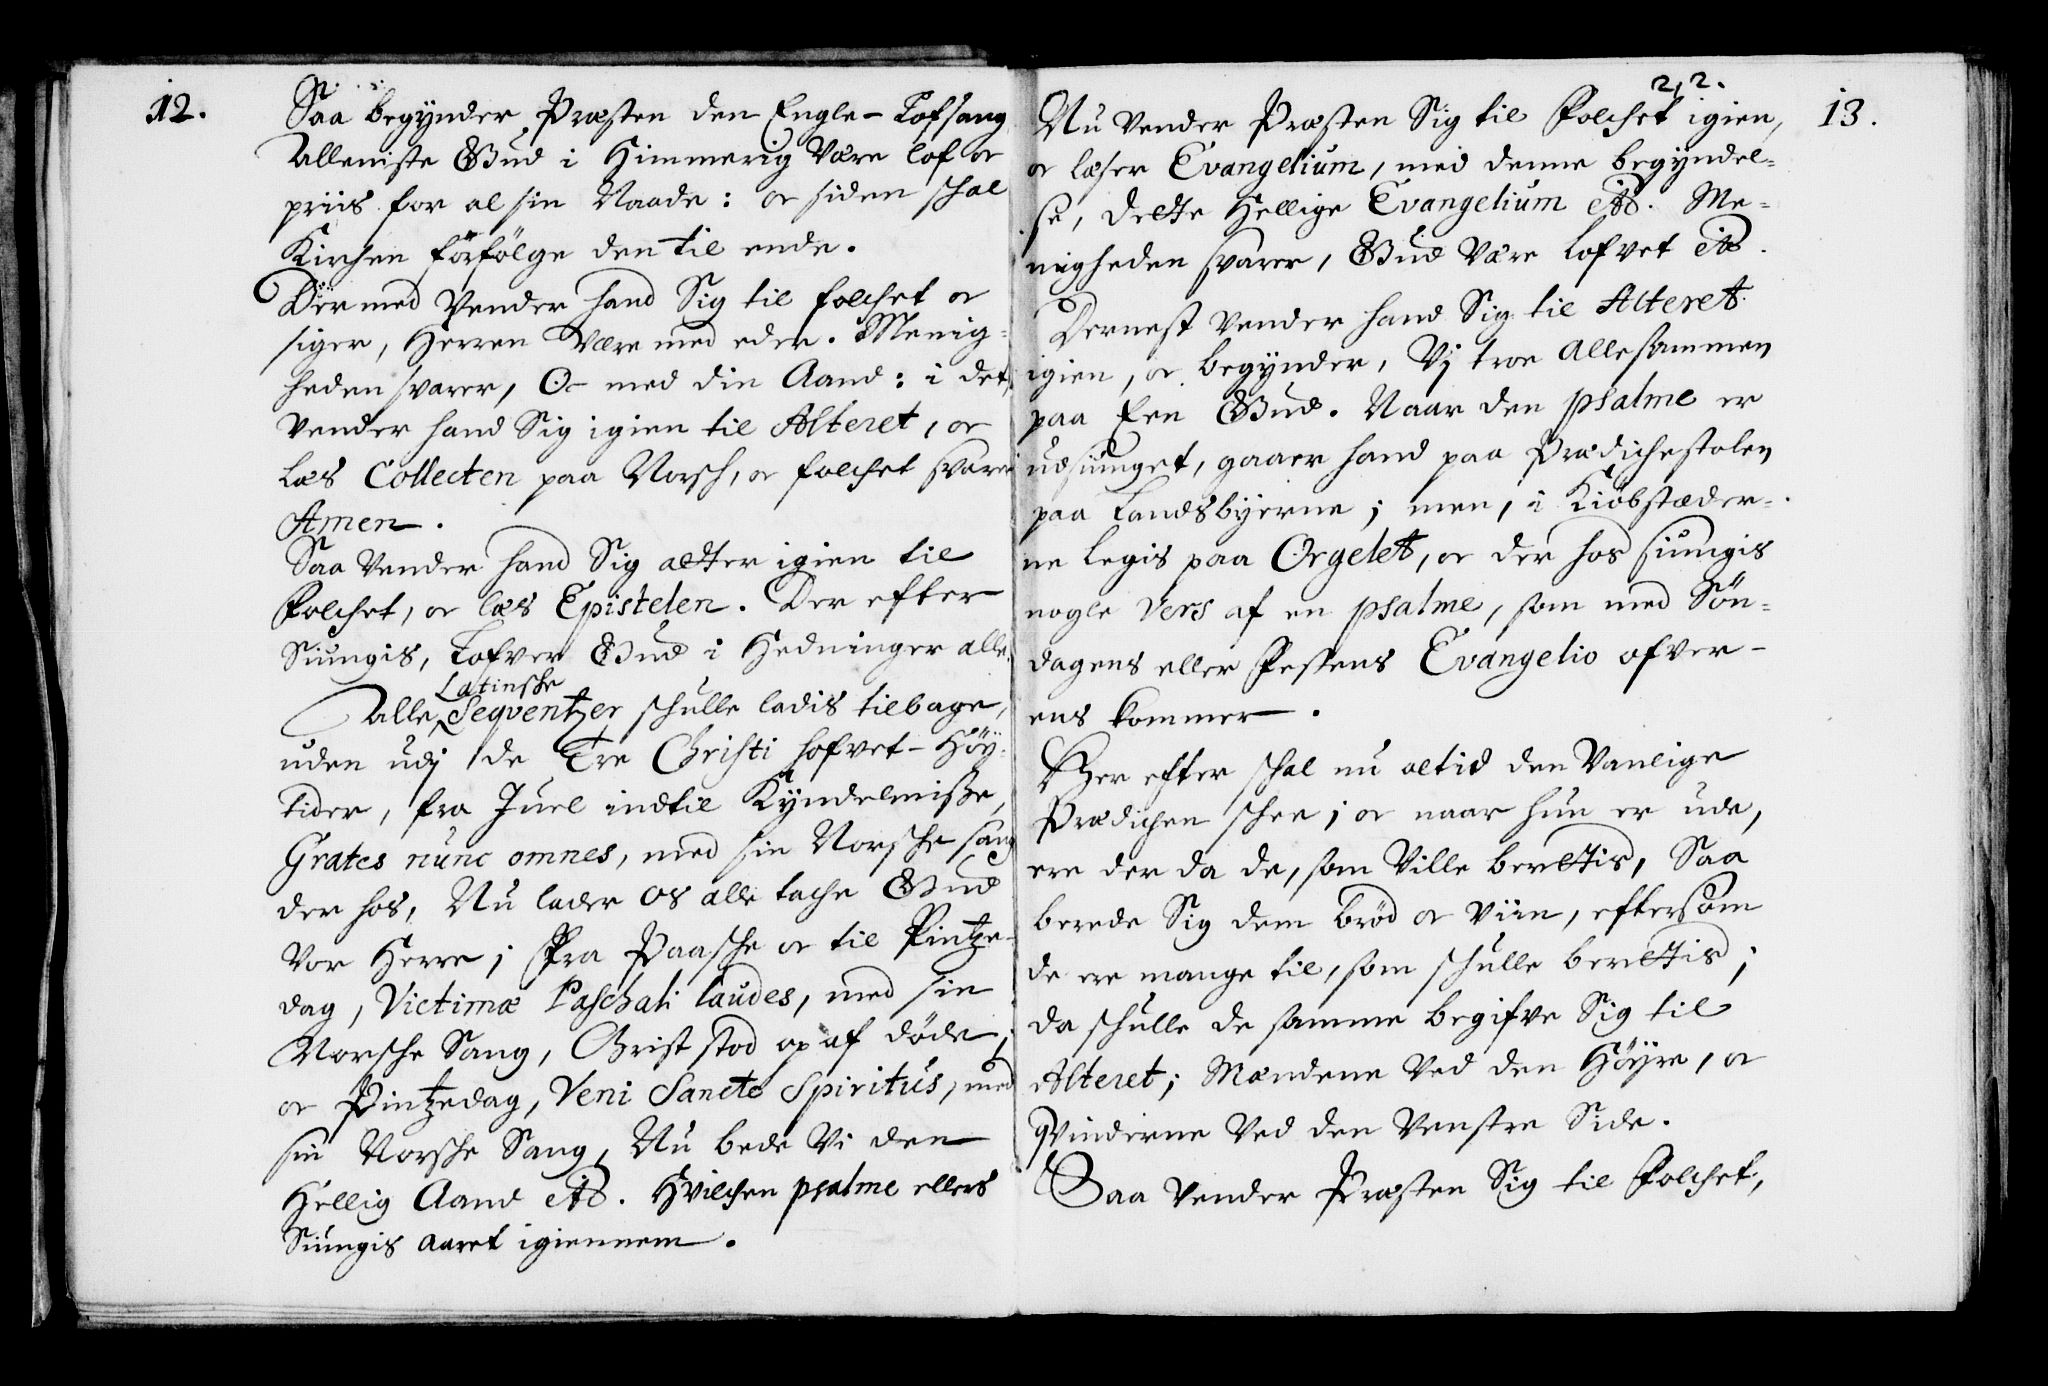 12.
Saa begynder Præsten den Engle-Lofsang
Alleniste Gud i Himmerig Være lof oc
priis for al sin Naade: oc siden schal
Kirchen forfölge den til ende.
Dermed Vender hand Sig til folchet oc
siger, Herren Være med eder. Menig-
heden svarer, Oc med din Aand: i det,
Vender hand Sig igien til Alteret, oc
læs Collecten paa Norsch, oc folchet svarer
Amen.
Saa Vender hand Sig atter igien til
Folchet, oc læs Epistelen. Der efter
Siungis, Lofver Gud i Hedninger alle.
Latinsche
Alle Seqventzer schulle ladis tilbage,
uden udj de Tre Christi hofvet-Höy-
tider, fra Juel indtil Kyndelmisse,
Grates nunc omnes, med sin Norsche sang
der hos, Nu lader os alle tache Gud
Vor Herre; Fra Paasche oc til Pintze-
dag, Victimæ Paschali laudes, med sin
Norsche Sang, Christ stod op af döde;
oc Pintzedag, Veni Sancte Spiritus, med
sin Norsche Sang, Nu bede Vi den
Hellig Aand etc. Hvilchen psalme ellers
Siungis aaret igiennem.
2,2.
13.
Nu Vender Præsten Sig til Folchet igien,
oc læser Evangelium, med denne begyndel-
se, Dette Hellige Evangelium etc. Me-
nigheden svarer, Gud Være Lofvet etc.
Dernest Vender hand Sig til Alteret
igien, oc begynder, Vj troe Allesammen
paa Een Gud. Naar den psalme er
udsiunget, gaaer hand paa Prædichestolen
paa Landsbyerne; men, i Kiöbstæder-
ne legis paa Orgelet, oc der hos siungis
nogle Vers af en psalme, som med Sön-
dagens eller Festens Evangelio ofver-
ens kommer.
Her efter schal nu altid den Vanlige
Prædichen schee; oc naar hun er ude,
ere der da de, som Ville berettis, Saa
berede Sig dem bröd oc Viin, eftersom
de ere mange til, som schulle berettis;
da schulle de samme begifve Sig til
Alteret; Mændene Ved den Höyre, oc
Qvinderne Ved den Venstre Side.
Saa Vender Præsten Sig til Folchet,